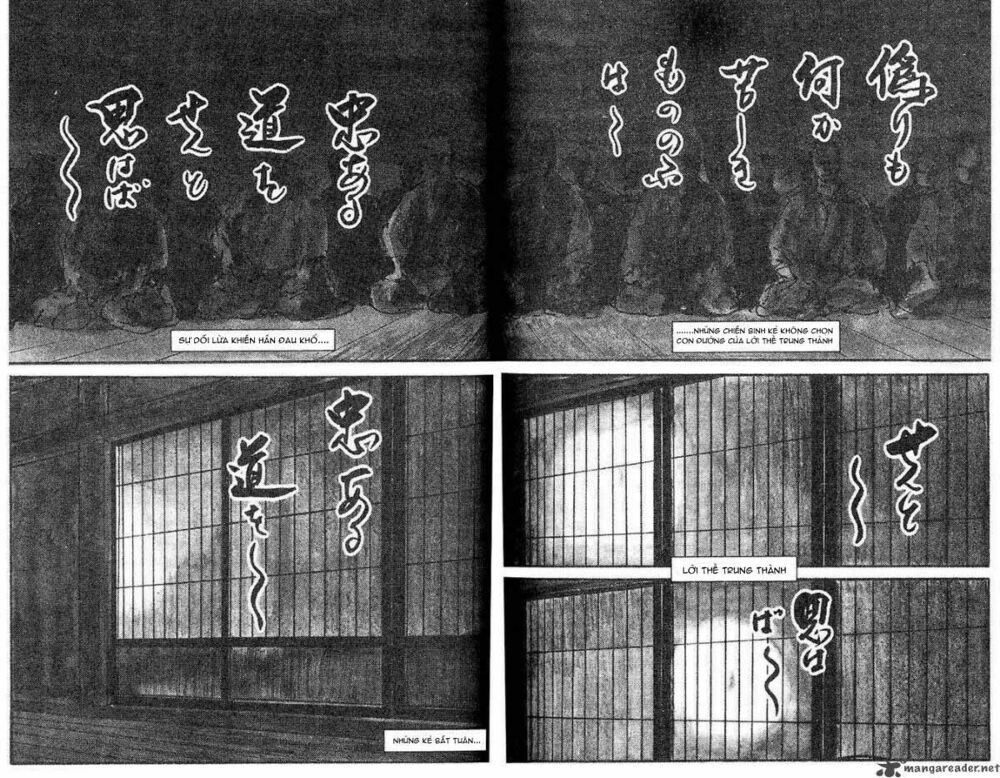 偽りも
何か
せましを
もののふ
は〜
.......NHỮNG CHIẾN BINH KẺ KHÔNG CHỌN
CON ĐƯỜNG CỦA LỜI THỀ TRUNG THÀNH
忠ある
道を
せんと
思はば
〜
SỰ DỐI LỪA KHIẾN HẮN ĐAU KHỔ....
せんと
〜
LỜI THỀ TRUNG THÀNH
思は
ば〜
忠ある
道を〜
NHỮNG KẺ BẤT TUÂN...
mangareader.net